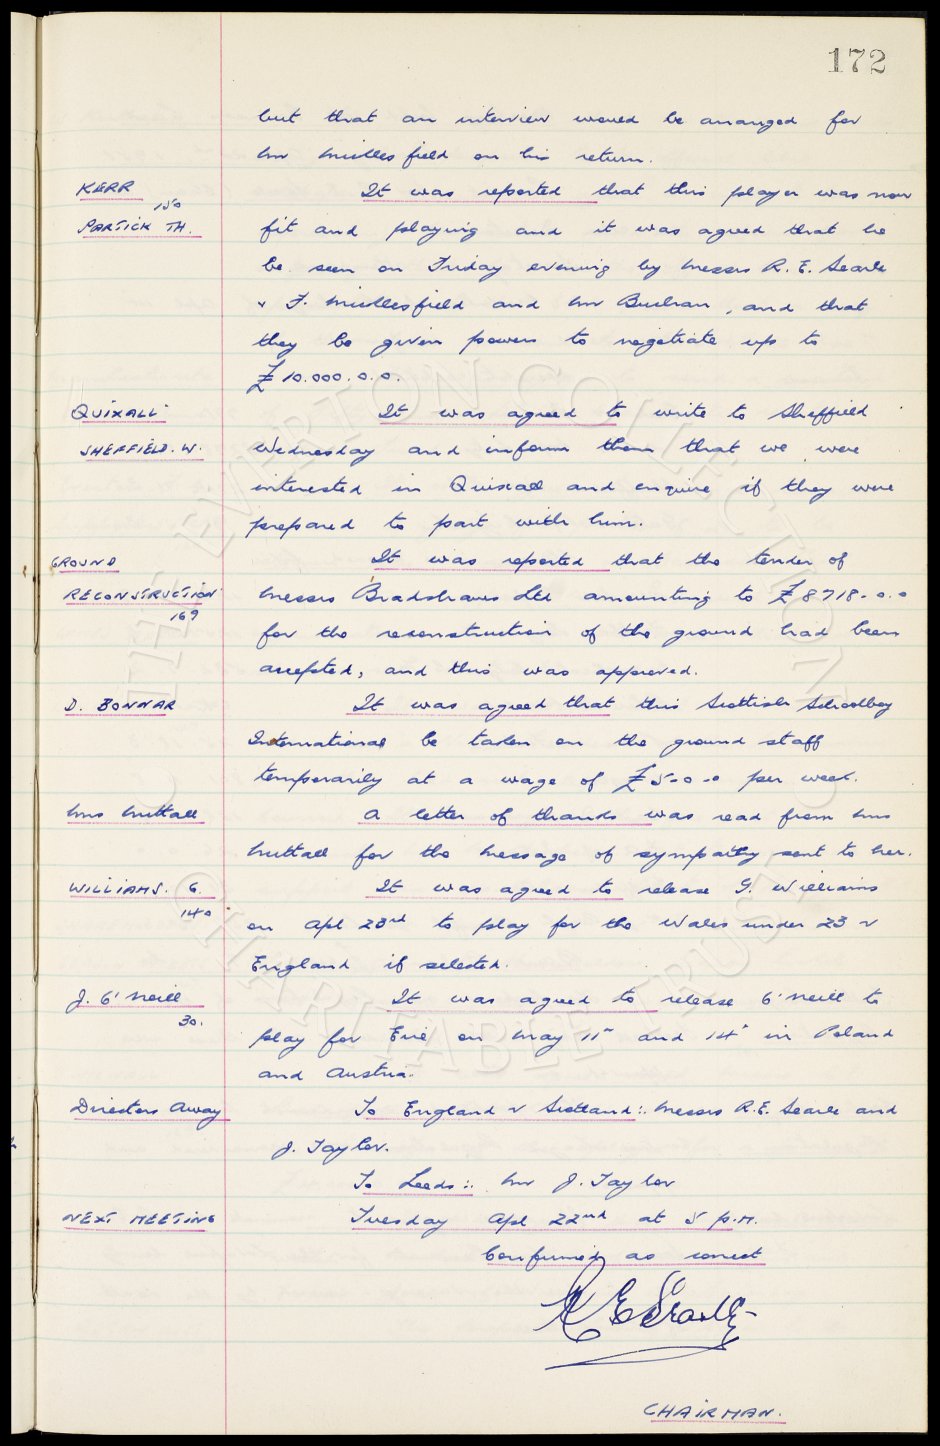 172
but that an interview would be arranged for
Mr Micklesfield on his return.
KERR
150
PARTICK TH.
It was reported that this player was now
fit and playing and it was agreed that he
be seen on Friday evening by Messrs R. E. Searle
& F. Micklesfield and Mr Buchan, and that
they be given powers to negotiate up to
£10.000.0.0.
QUIXALL
SHEFFIELD. W.
It was agreed to write to Sheffield
Wednesday and inform them that we were
interested in Quixall and enquire if they were
prepared to part with him.
GROUND
RECONSTRUCTION
169
It was reported that the tender of
Messrs Bradshaws Ltd amounting to £8718.0.0
for the reconstruction of the ground had been
accepted, and this was approved.
D. BONNAR
It was agreed that this Scottish Schoolboy
International be taken on the ground staff
temporarily at a wage of £5-0-0 per week.
Mrs Nuttall
A letter of thanks was read from Mrs
Nuttall for the message of sympathy sent to her.
WILLIAMS. G.
140
It was agreed to release G. Williams
on Apl 23rd to play for the Wales under 23 v
England if selected.
J. O'Neill
30.
It was agreed to release O'Neill to
play for Eire on May 11" and 14" in Poland
and Austria.
Directors Away
To England v Scotland:. Messrs R.E. Searle and
J. Taylor.
To Leeds:. Mr J. Taylor
NEXT MEETING
Tuesday Apl 22nd at 5 p.m.
Confirmed as correct
R E Searle
CHAIRMAN.
THE EVERTON COLLECTION
CHARITABLE TRUST